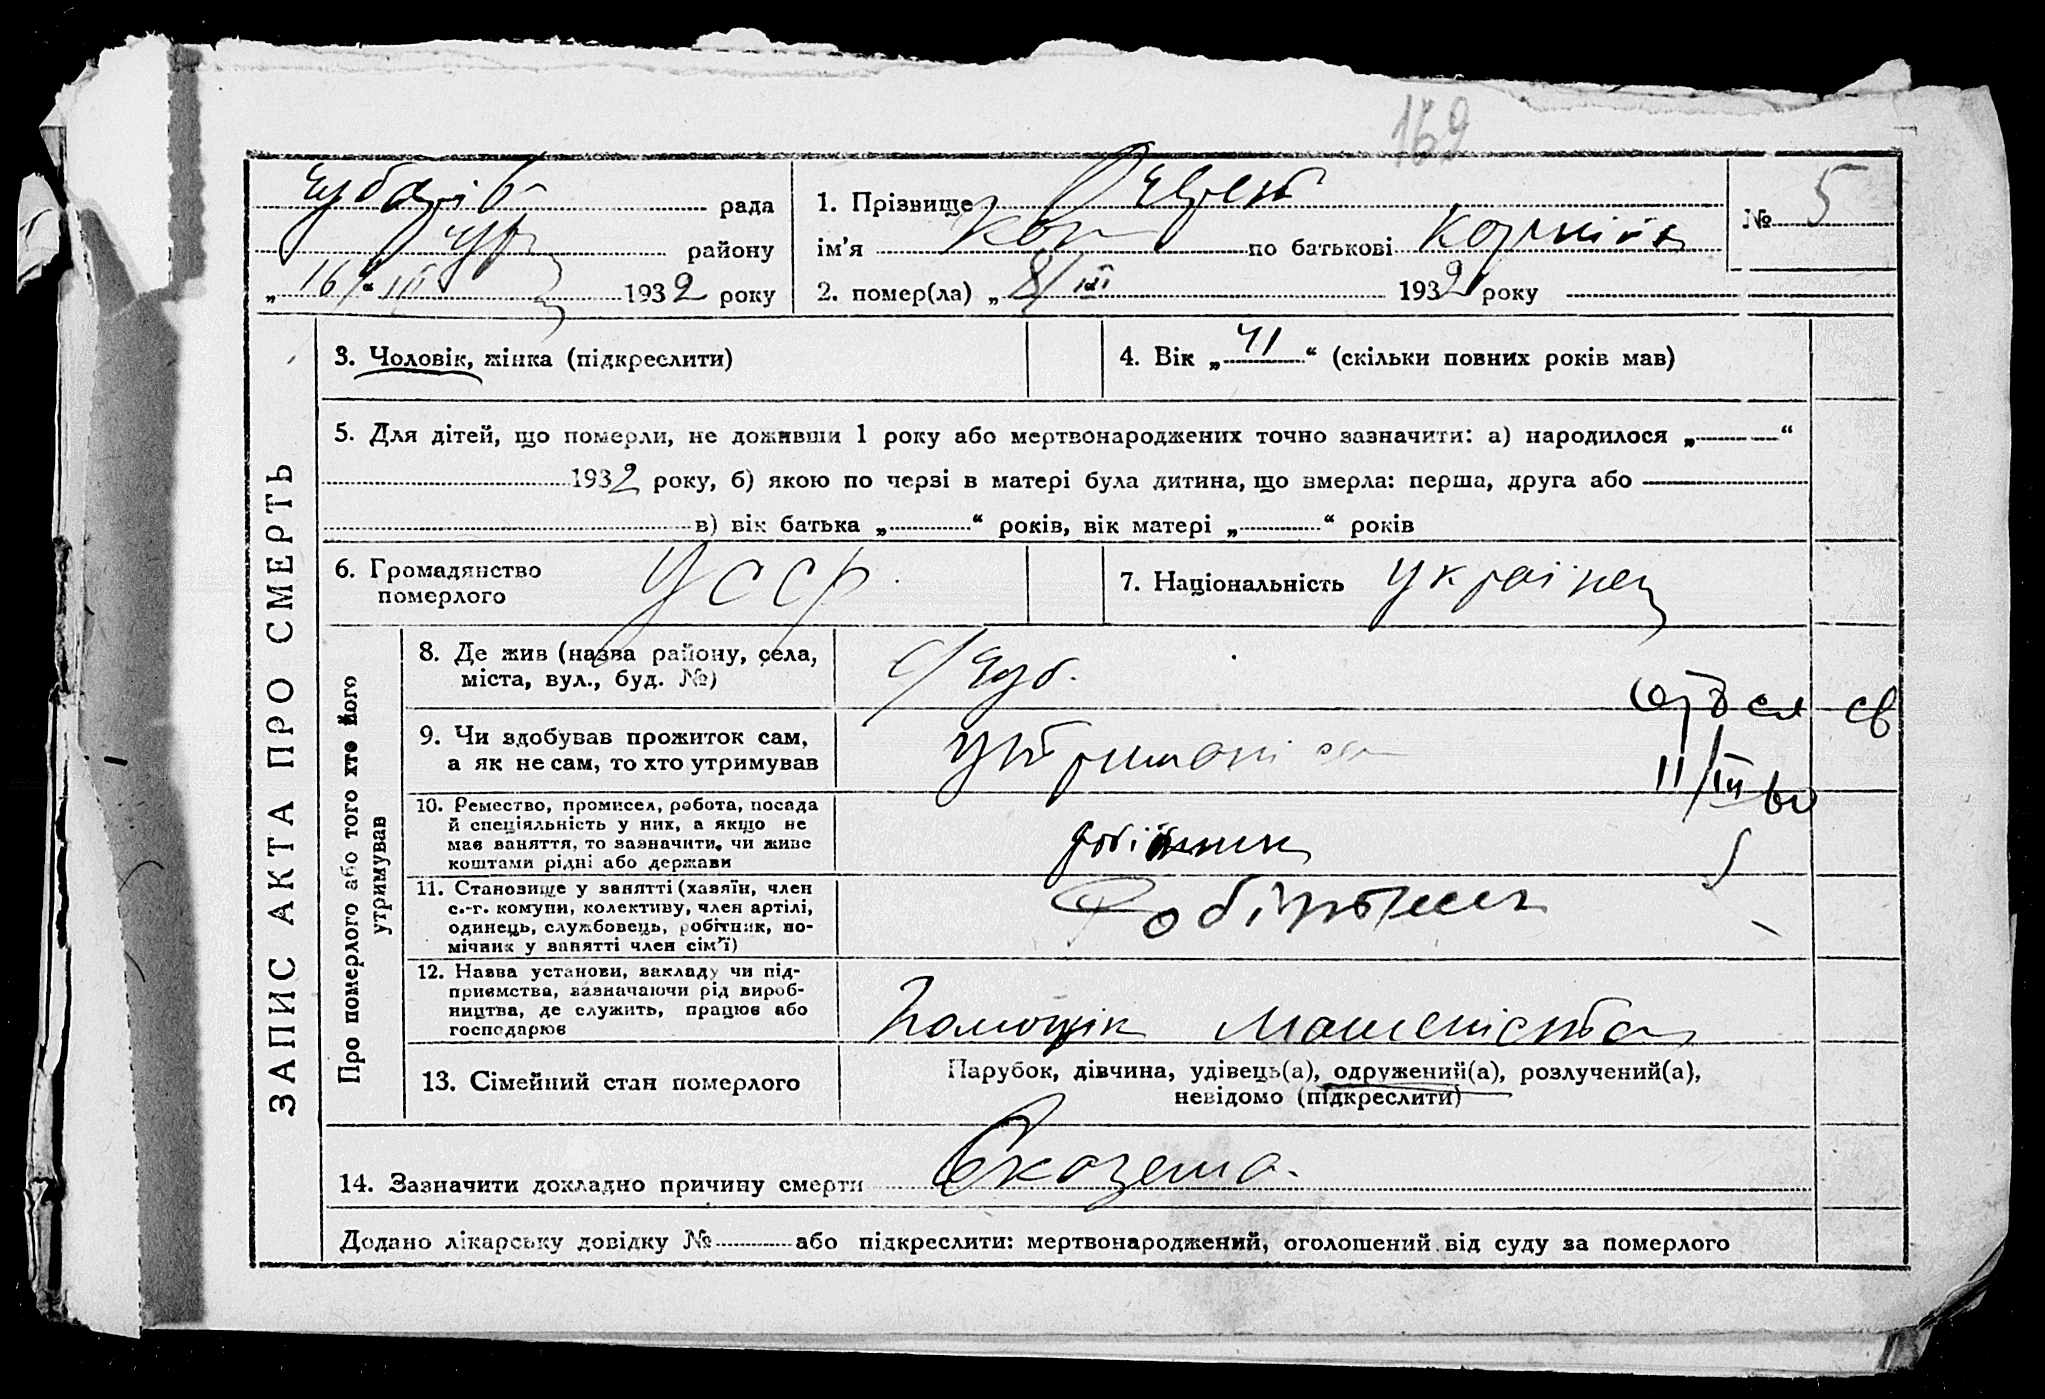 169
рада
району
„16/“ III 1932 року
1. Прізвище
ім'я по батькові
2. помер(ла) „8/III 1932 року
№ 5
ЗАПИС АКТА ПРО СМЕРТЬ
3. Чоловік, жінка (підкреслити)
4. Вік „41“ (скільки повних років мав)
5. Для дітей, що померли, не доживши 1 року або мертвонароджених точно зазначити: а) народилося „ “
1932 року, б) якою по черзі в матері була дитина, що вмерла: перша, друга або
в) вік батька „ “ років, вік матері „ “ років
6. Громадянство
померлого
УССР
7. Національність Українец
Про померлого або того хто його
утримував
8. Де жив (назва району, села,
міста, вул., буд. №)
9. Чи здобував прожиток сам,
а як не сам, то хто утримував
11/III
10. Ремество, промисел, робота, посада
й спеціяльність у них, а якщо не
має заняття, то зазначити, чи живе
коштами рідні або держави
11. Становище у занятті (хазяїн, член
с.-г. комуни, колективу, член артілі,
одинець, службовець, робітник, по-
мічник у занятті член сім'ї)
Робітник
12. Назва установи, закладу чи під-
приємства, зазначаючи рід вироб-
ництва, де служить, працює або
господарює
Помощік машеніста
13. Сімейний стан померлого
Парубок, дівчина, удівець(а), одружений(а), розлучений(а),
невідомо (підкреслити)
14. Зазначити докладно причину смерти
Додано лікарську довідку № або підкреслити: мертвонароджений, оголошений від суду за померлого